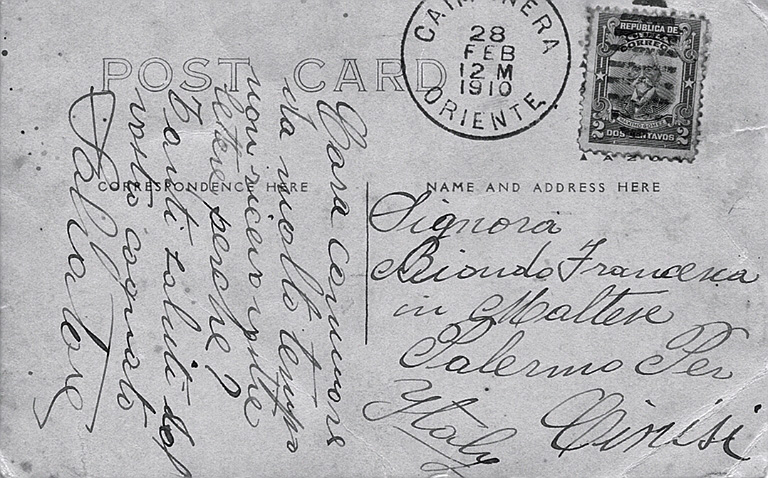 POST CARD
CAIMANERA
28
FEB
12 M
1910
ORIENTE
REPÚBLICA DE
CORREOS
2 DOS CENTAVOS 2
CORRESPONDENCE HERE
NAME AND ADDRESS HERE
Cara
da molto tempo
non ricevo vostre
letere perche?
Tanti saluti dal
vostro cognato
Salvatore
Signora
Biondo Francesca
in Maltese
Palermo Per
Cinisi
Italy